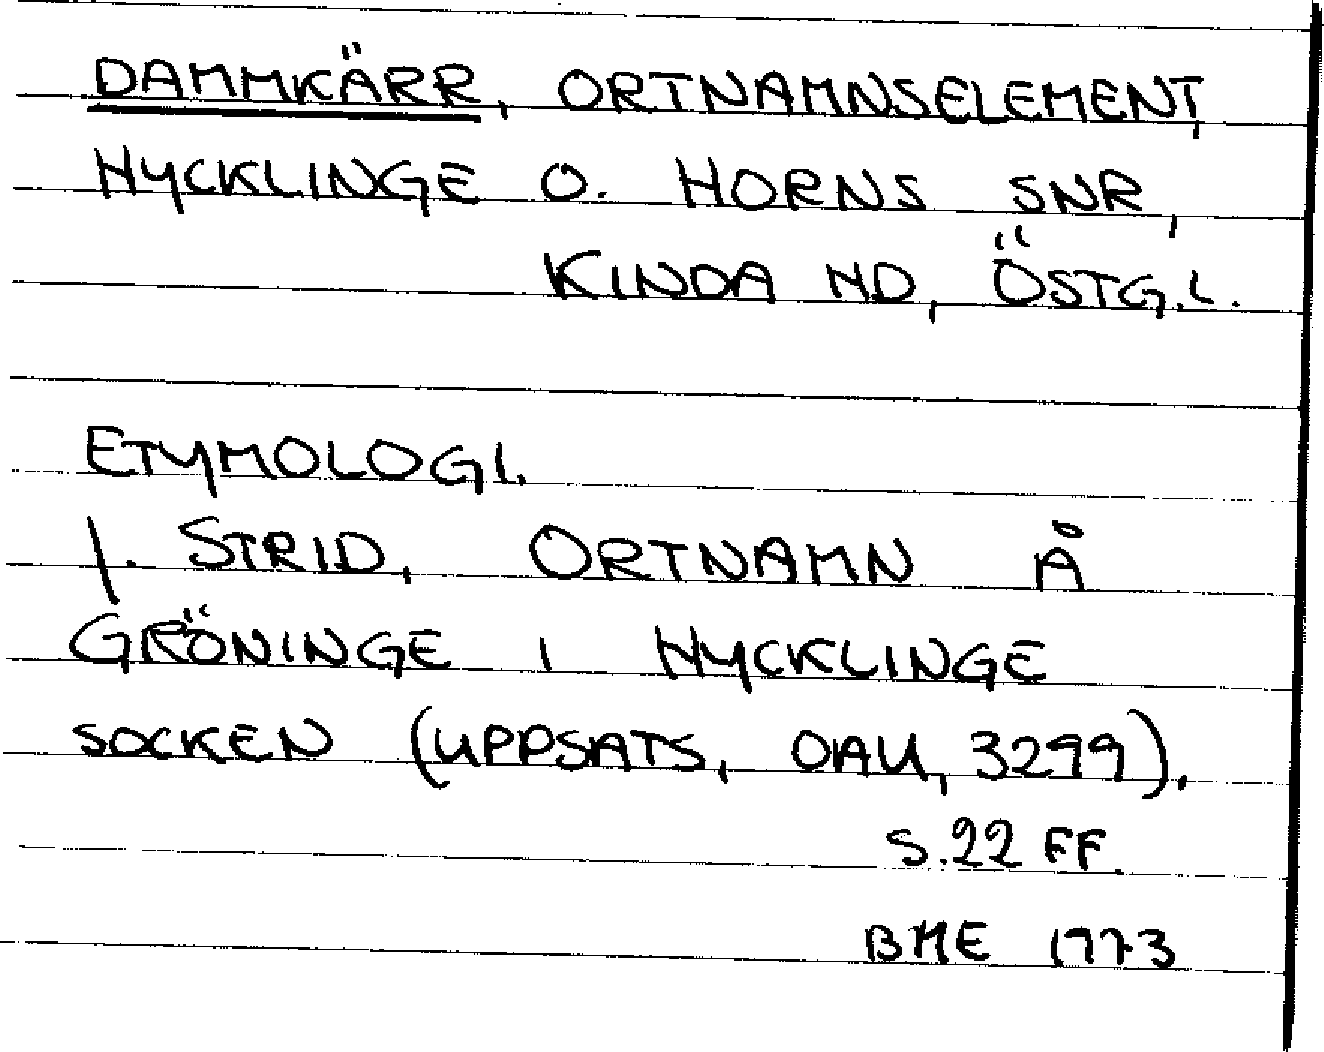 DAMMKÄRR, ORTNAMNSELEMENT,
HYCKLINGE O. HORNS SNR,
KINDA HD, ÖSTG.L.
ETYMOLOGI.
J. STRID, ORTNAMN Å
GRÖNINGE I HYCKLINGE
SOCKEN (UPPSATS, OAU, 3299),
S. 22 FF.
BME 1973